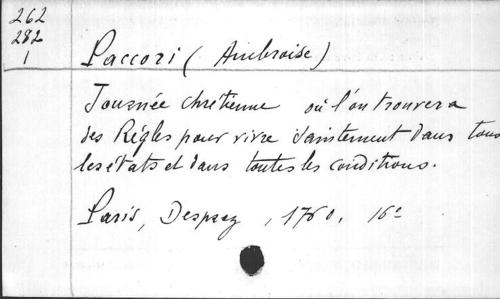 262
282
1
Paccori (Ambroise)
Journée chrétienne où l'on trouvera
des Règles pour vivre saintement dans tous
les états et dans toutes les conditions.
Paris, Desprez, 1760. 16°